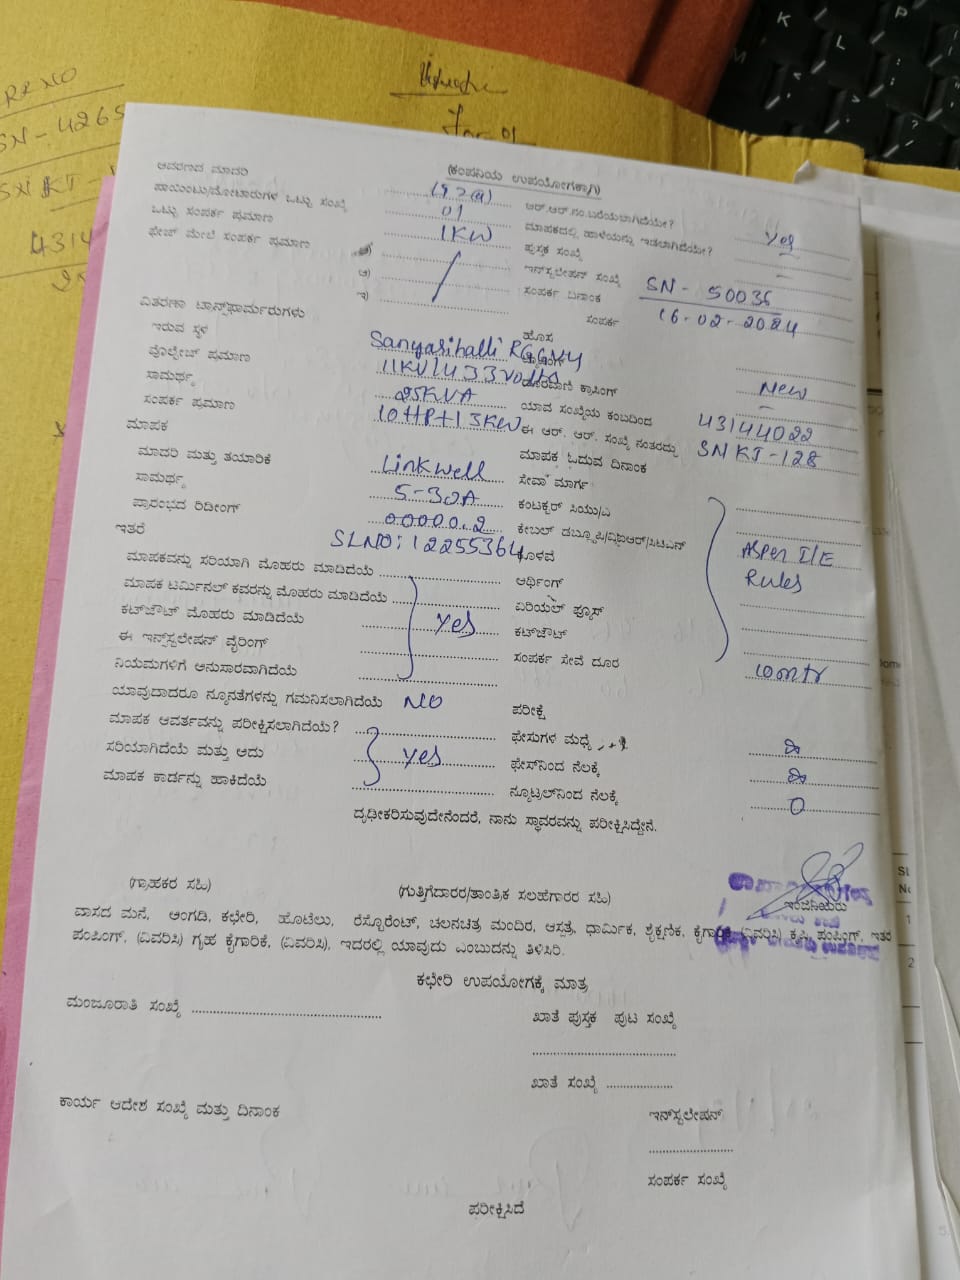 RR NO
SN - 4265
(ಕಂಪನಿಯ ಉಪಯೋಗಕ್ಕಾಗಿ)
ಆವರಣದ ಮಾದರಿ
ಆರ್.ಆರ್.ನಂ.ಬರೆಯಲಾಗಿದೆಯೇ? Yes
ಪಾಯಿಂಟು/ಮೋಟಾರುಗಳ ಒಟ್ಟು ಸಂಖ್ಯೆ 01
ಮಾಪಕದಲ್ಲಿ ಹಾಳೆಯನ್ನು ಇಡಲಾಗಿದೆಯೇ? –
ಒಟ್ಟು ಸಂಪರ್ಕ ಪ್ರಮಾಣ 1KW
ಪುಸ್ತಕ ಸಂಖ್ಯೆ
ಫೇಜ್ ಮೇಲೆ ಸಂಪರ್ಕ ಪ್ರಮಾಣ
ಇನ್‌ಸ್ಟಲೇಷನ್ ಸಂಖ್ಯೆ SN - 50036
ಆ)
ಸಂಪರ್ಕ ದಿನಾಂಕ 16-02-2024
ಇ)
ಸಂಪರ್ಕ
ವಿತರಣಾ ಟ್ರಾನ್ಸ್‌ಫಾರ್ಮರುಗಳು
ಹೊಸ
ಇರುವ ಸ್ಥಳ Sanyasihalli
ವೋಲ್ಟೇಜ್ ಪ್ರಮಾಣ 11KV/433Volts
ಕ್ರಾಸಿಂಗ್ New
ಸಾಮರ್ಥ್ಯ 25KVA
ಯಾವ ಸಂಖ್ಯೆಯ ಕಂಬದಿಂದ 43144022
ಸಂಪರ್ಕ ಪ್ರಮಾಣ 10HP+13KW
ಈ ಆರ್. ಆರ್. ಸಂಖ್ಯೆ ನಂತರದ್ದು SNKJ-128
ಮಾಪಕ
ಮಾಪಕ ಓದುವ ದಿನಾಂಕ
ಮಾದರಿ ಮತ್ತು ತಯಾರಿಕೆ Linkwell
ಸೇವಾ ಮಾರ್ಗ
ಸಾಮರ್ಥ್ಯ 5-30A
ಕಂಟಕ್ಟರ್ ಸಿಯು/ಎ
ಪ್ರಾರಂಭದ ರಿಡೀಂಗ್ 00000.2
ಕೇಬಲ್ ಡಬ್ಲೂಪಿ/ವಿಐಆರ್/ಸಿಟಿಎಸ್
ಇತರೆ SLNO: 12255364
ಕೊಳವೆ Asper I/E
ಮಾಪಕವನ್ನು ಸರಿಯಾಗಿ ಮೊಹರು ಮಾಡಿದೆಯೆ
ಆರ್ಥಿಂಗ್ Rules
ಮಾಪಕ ಟರ್ಮಿನಲ್ ಕವರನ್ನು ಮೊಹರು ಮಾಡಿದೆಯೆ
ಏರಿಯಲ್ ಫ್ಯೂಸ್
ಕಟ್‌ಔಟ್ ಮೊಹರು ಮಾಡಿದೆಯೆ Yes
ಕಟ್‌ಔಟ್
ಈ ಇನ್ಸ್‌ಸ್ಟಲೇಷನ್ ವೈರಿಂಗ್
ಸಂಪರ್ಕ ಸೇವೆ ದೂರ 10mtr
ನಿಯಮಗಳಿಗೆ ಅನುಸಾರವಾಗಿದೆಯೆ
ಯಾವುದಾದರೂ ನ್ಯೂನತೆಗಳನ್ನು ಗಮನಿಸಲಾಗಿದೆಯೆ NO
ಪರೀಕ್ಷೆ
ಮಾಪಕ ಆವರ್ತವನ್ನು ಪರೀಕ್ಷಿಸಲಾಗಿದೆಯೆ?
ಫೇಸುಗಳ ಮಧ್ಯೆ
ಸರಿಯಾಗಿದೆಯೆ ಮತ್ತು ಅದು Yes
ಫೇಸ್‌ನಿಂದ ನೆಲಕ್ಕೆ
ಮಾಪಕ ಕಾರ್ಡನ್ನು ಹಾಕಿದೆಯೆ
ನ್ಯೂಟ್ರಲ್‌ನಿಂದ ನೆಲಕ್ಕೆ 0
ದೃಢೀಕರಿಸುವುದೇನೆಂದರೆ, ನಾನು ಸ್ಥಾವರವನ್ನು ಪರೀಕ್ಷಿಸಿದ್ದೇನೆ.
(ಗ್ರಾಹಕರ ಸಹಿ)
(ಗುತ್ತಿಗೆದಾರರ/ತಾಂತ್ರಿಕ ಸಲಹೆಗಾರರ ಸಹಿ)
ಇಂಜಿನಿಯರು
ವಾಸದ ಮನೆ, ಅಂಗಡಿ, ಕಛೇರಿ, ಹೊಟೆಲು, ರೆಸ್ಟೊರೆಂಟ್, ಚಲನಚಿತ್ರ ಮಂದಿರ, ಆಸ್ಪತ್ರೆ, ಧಾರ್ಮಿಕ, ಶೈಕ್ಷಣಿಕ, ಕೈಗಾರಿಕೆ, (ವಿವರಿಸಿ) ಕೃಷಿ, ಪಂಪಿಂಗ್, ಇತರೆ
ಪಂಪಿಂಗ್, (ವಿವರಿಸಿ) ಗೃಹ ಕೈಗಾರಿಕೆ, (ವಿವರಿಸಿ), ಇದರಲ್ಲಿ ಯಾವುದು ಎಂಬುದನ್ನು ತಿಳಿಸಿರಿ.
ಕಛೇರಿ ಉಪಯೋಗಕ್ಕೆ ಮಾತ್ರ
ಮಂಜೂರಾತಿ ಸಂಖ್ಯೆ
ಖಾತೆ ಪುಸ್ತಕ ಪುಟ ಸಂಖ್ಯೆ
ಖಾತೆ ಸಂಖ್ಯೆ
ಕಾರ್ಯ ಆದೇಶ ಸಂಖ್ಯೆ ಮತ್ತು ದಿನಾಂಕ
ಇನ್‌ಸ್ಟಲೇಷನ್
ಸಂಪರ್ಕ ಸಂಖ್ಯೆ
ಪರೀಕ್ಷಿಸಿದೆ